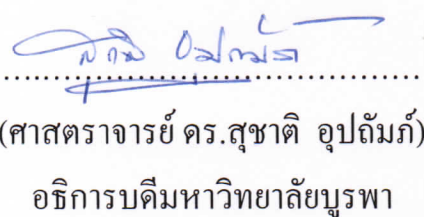 สุชาติ อุปถัมภ์
(ศาสตราจารย์ ดร.สุชาติ อุปถัมภ์)
อธิการบดีมหาวิทยาลัยบูรพา